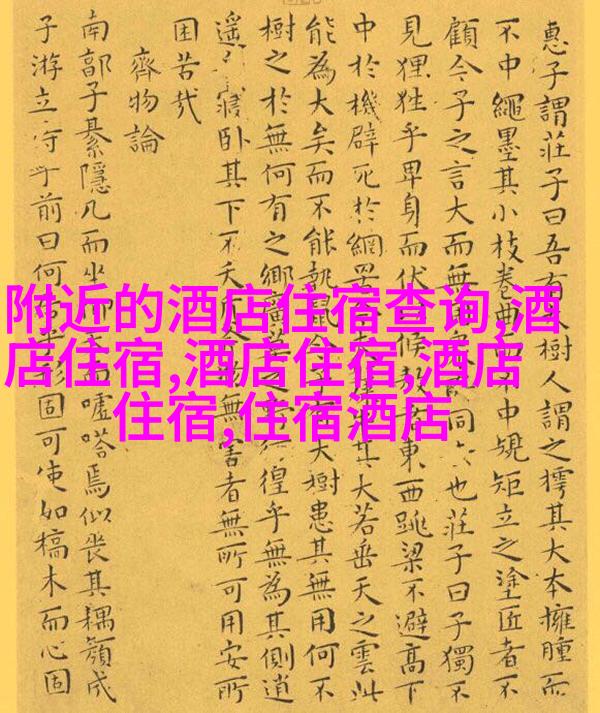 附近的酒店住宿查询,酒
店住宿,酒店住宿,酒店
住宿,住宿酒店
惠子謂莊子曰吾有樹人謂之樗其大本擁腫而
不中繩墨其小枝卷曲而不中規矩立之塗匠者不
顧今子之言大而無同也莊子曰子獨不
見狸狌乎卑身而伏候敖者東西跳梁不避高下
中於機辟死於網罟其大若垂天之雲此
能為大矣而不能執鼠今子大樹患其無用何不
樹之於無何有之鄉徨乎無為其側逍
遥寢卧其下不夭物無害者無所可用安所
困苦哉
齊物論
南郭子綦隱几而坐天而噓嗒焉似喪其耦顏成
子游立侍乎前曰何形固可使如槁木而心固